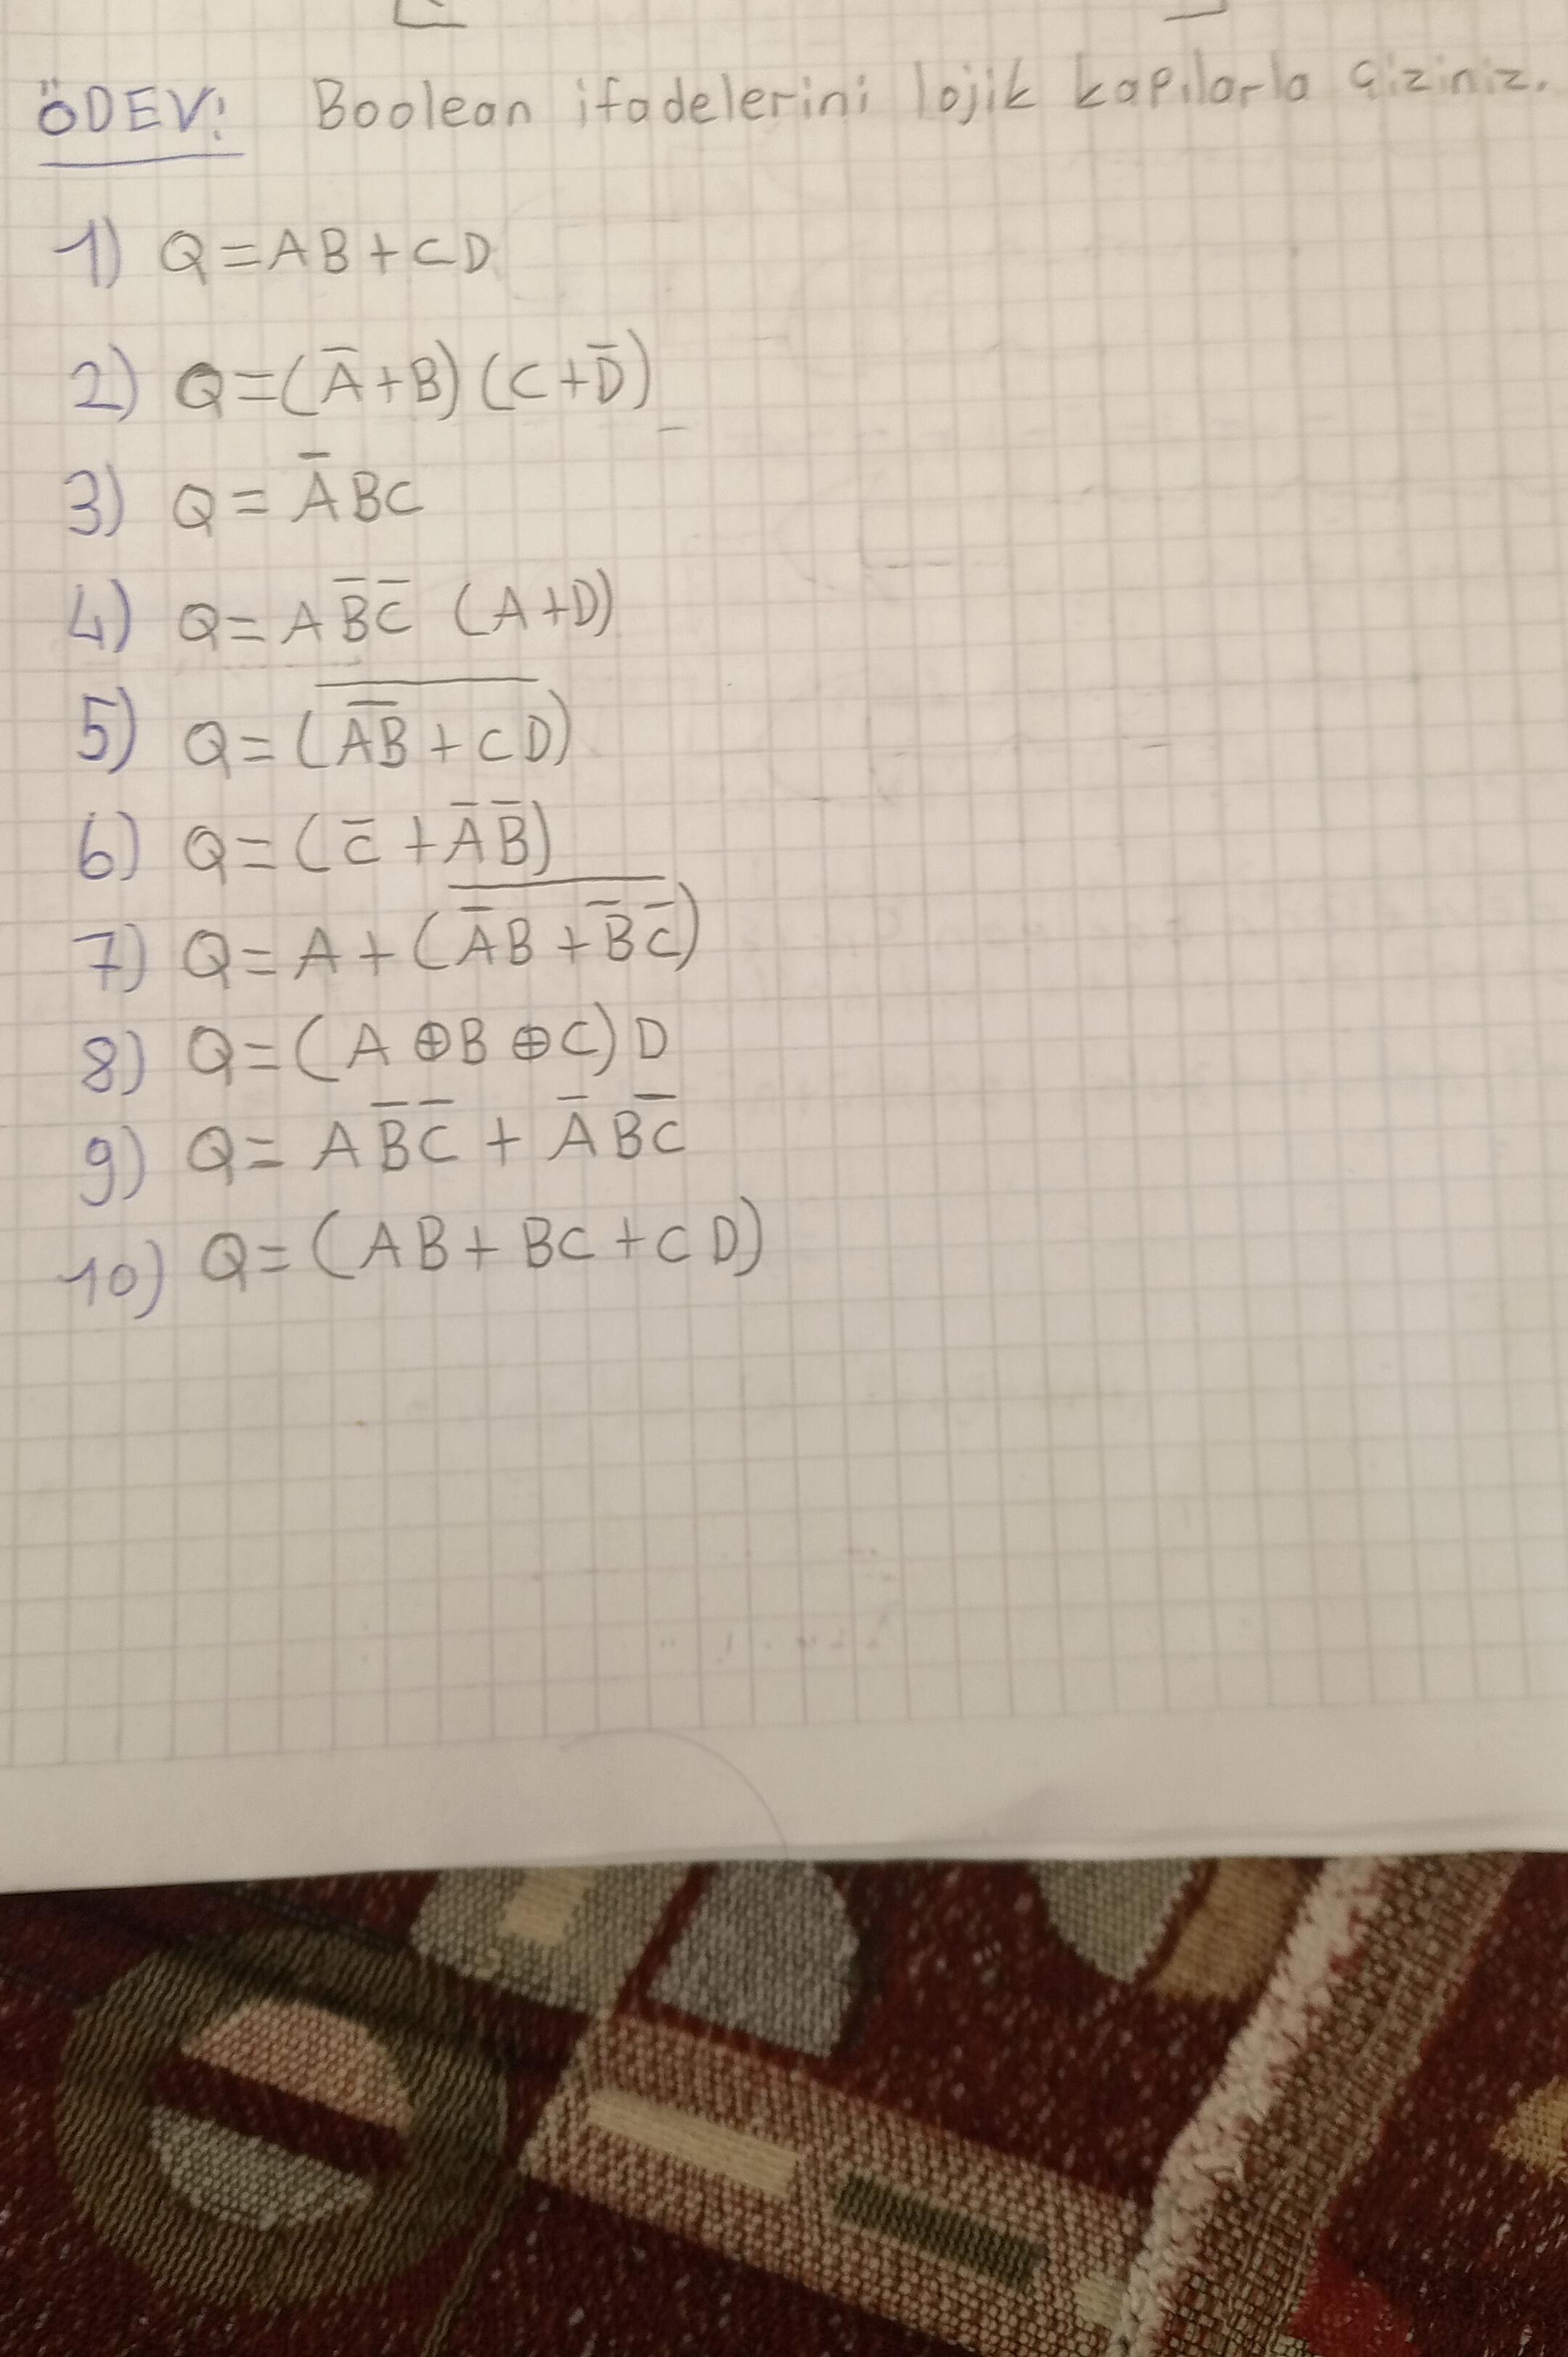 ÖDEV: Boolean ifadelerini lojik kapılarla çiziniz.
1) Q=AB+CD
2) Q=(A̅+B)(C+D̅)
3) Q=A̅BC
4) Q=AB̅C̅ (A+D)
5) Q=(\overline{\overline{AB}+CD})
6) Q=(C̅+A̅B̅)
7) Q=A+(\overline{A̅B+B̅C̅})
8) Q=(A⊕B⊕C)D
9) Q=AB̅C̅+A̅BC̅
10) Q=(AB+BC+CD)